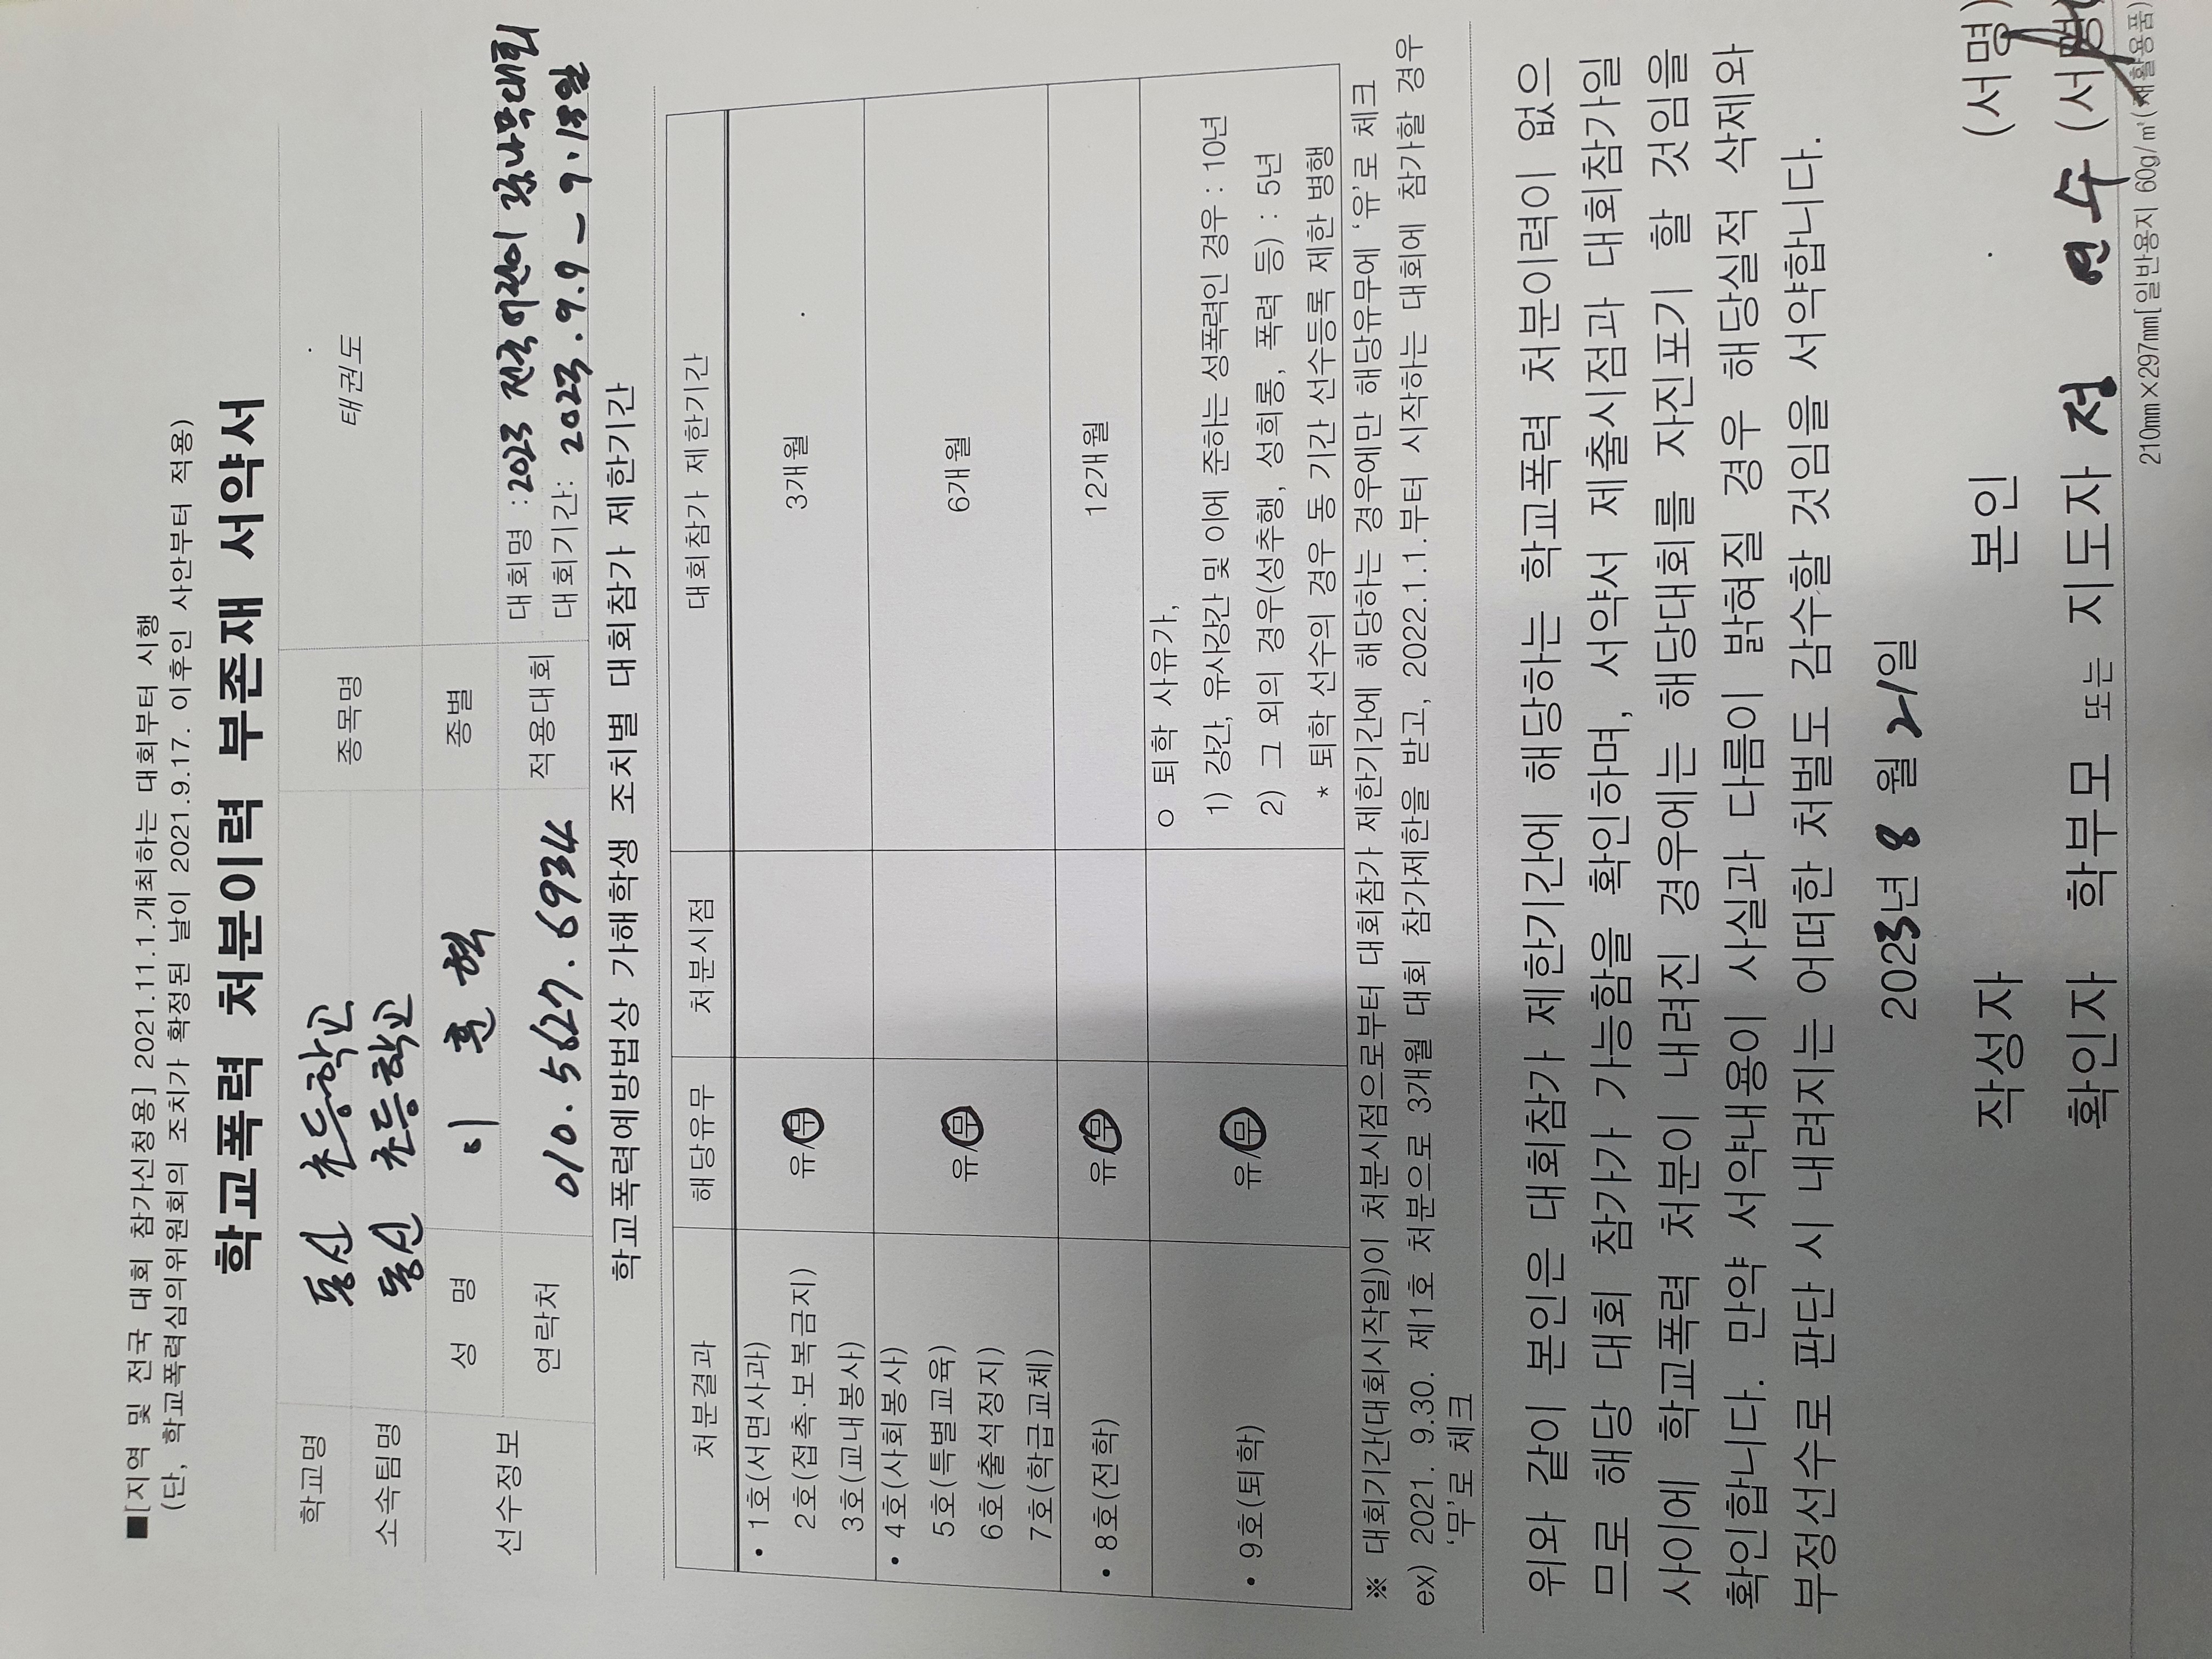 ■[지역 및 전국 대회 참가신청용] 2021.11.1.개최하는 대회부터 시행
(단, 학교폭력심의위원회의 조치가 확정된 날이 2021.9.17. 이후인 사안부터 적용)
학교폭력 처분이력 부존재 서약서
학교명 동신 초등학교 종목명 태권도
소속팀명 동신 초등학교
선수정보 성 명 이 훈 혁 종별
연락처 010. 5627. 6934 적용대회 대회명 : 2023 전국 어린이 꿈나무대회
대회기간: 2023. 9. 9 - 9. 13일
학교폭력예방법상 가해학생 조치별 대회참가 제한기간
처분결과 해당유무 처분시점 대회참가 제한기간
• 1호(서면사과)
2호(접촉·보복금지) 유/무 3개월
3호(교내봉사)
• 4호(사회봉사)
5호(특별교육) 유/무 6개월
6호(출석정지)
7호(학급교체)
• 8호(전학) 유/무 12개월
• 9호(퇴학) 유/무
ㅇ 퇴학 사유가,
1) 강간, 유사강간 및 이에 준하는 성폭력인 경우 : 10년
2) 그 외의 경우(성추행, 성희롱, 폭력 등) : 5년
* 퇴학 선수의 경우 동 기간 선수등록 제한 병행
※ 대회기간(대회시작일)이 처분시점으로부터 대회참가 제한기간에 해당하는 경우에만 해당유무에 '유'로 체크
ex) 2021. 9.30. 제1호 처분으로 3개월 대회 참가제한을 받고, 2022.1.1.부터 시작하는 대회에 참가할 경우
'무'로 체크
위와 같이 본인은 대회참가 제한기간에 해당하는 학교폭력 처분이력이 없으
므로 해당 대회 참가가 가능함을 확인하며, 서약서 제출시점과 대회참가일
사이에 학교폭력 처분이 내려진 경우에는 해당대회를 자진포기 할 것임을
확인합니다. 만약 서약내용이 사실과 다름이 밝혀질 경우 해당실적 삭제와
부정선수로 판단 시 내려지는 어떠한 처벌도 감수할 것임을 서약합니다.
2023년 8 월 21일
작성자 본인 (서명)
확인자 학부모 또는 지도자 정 연 수 (서명)
210㎜×297㎜[일반용지 60g/㎡(재활용품)